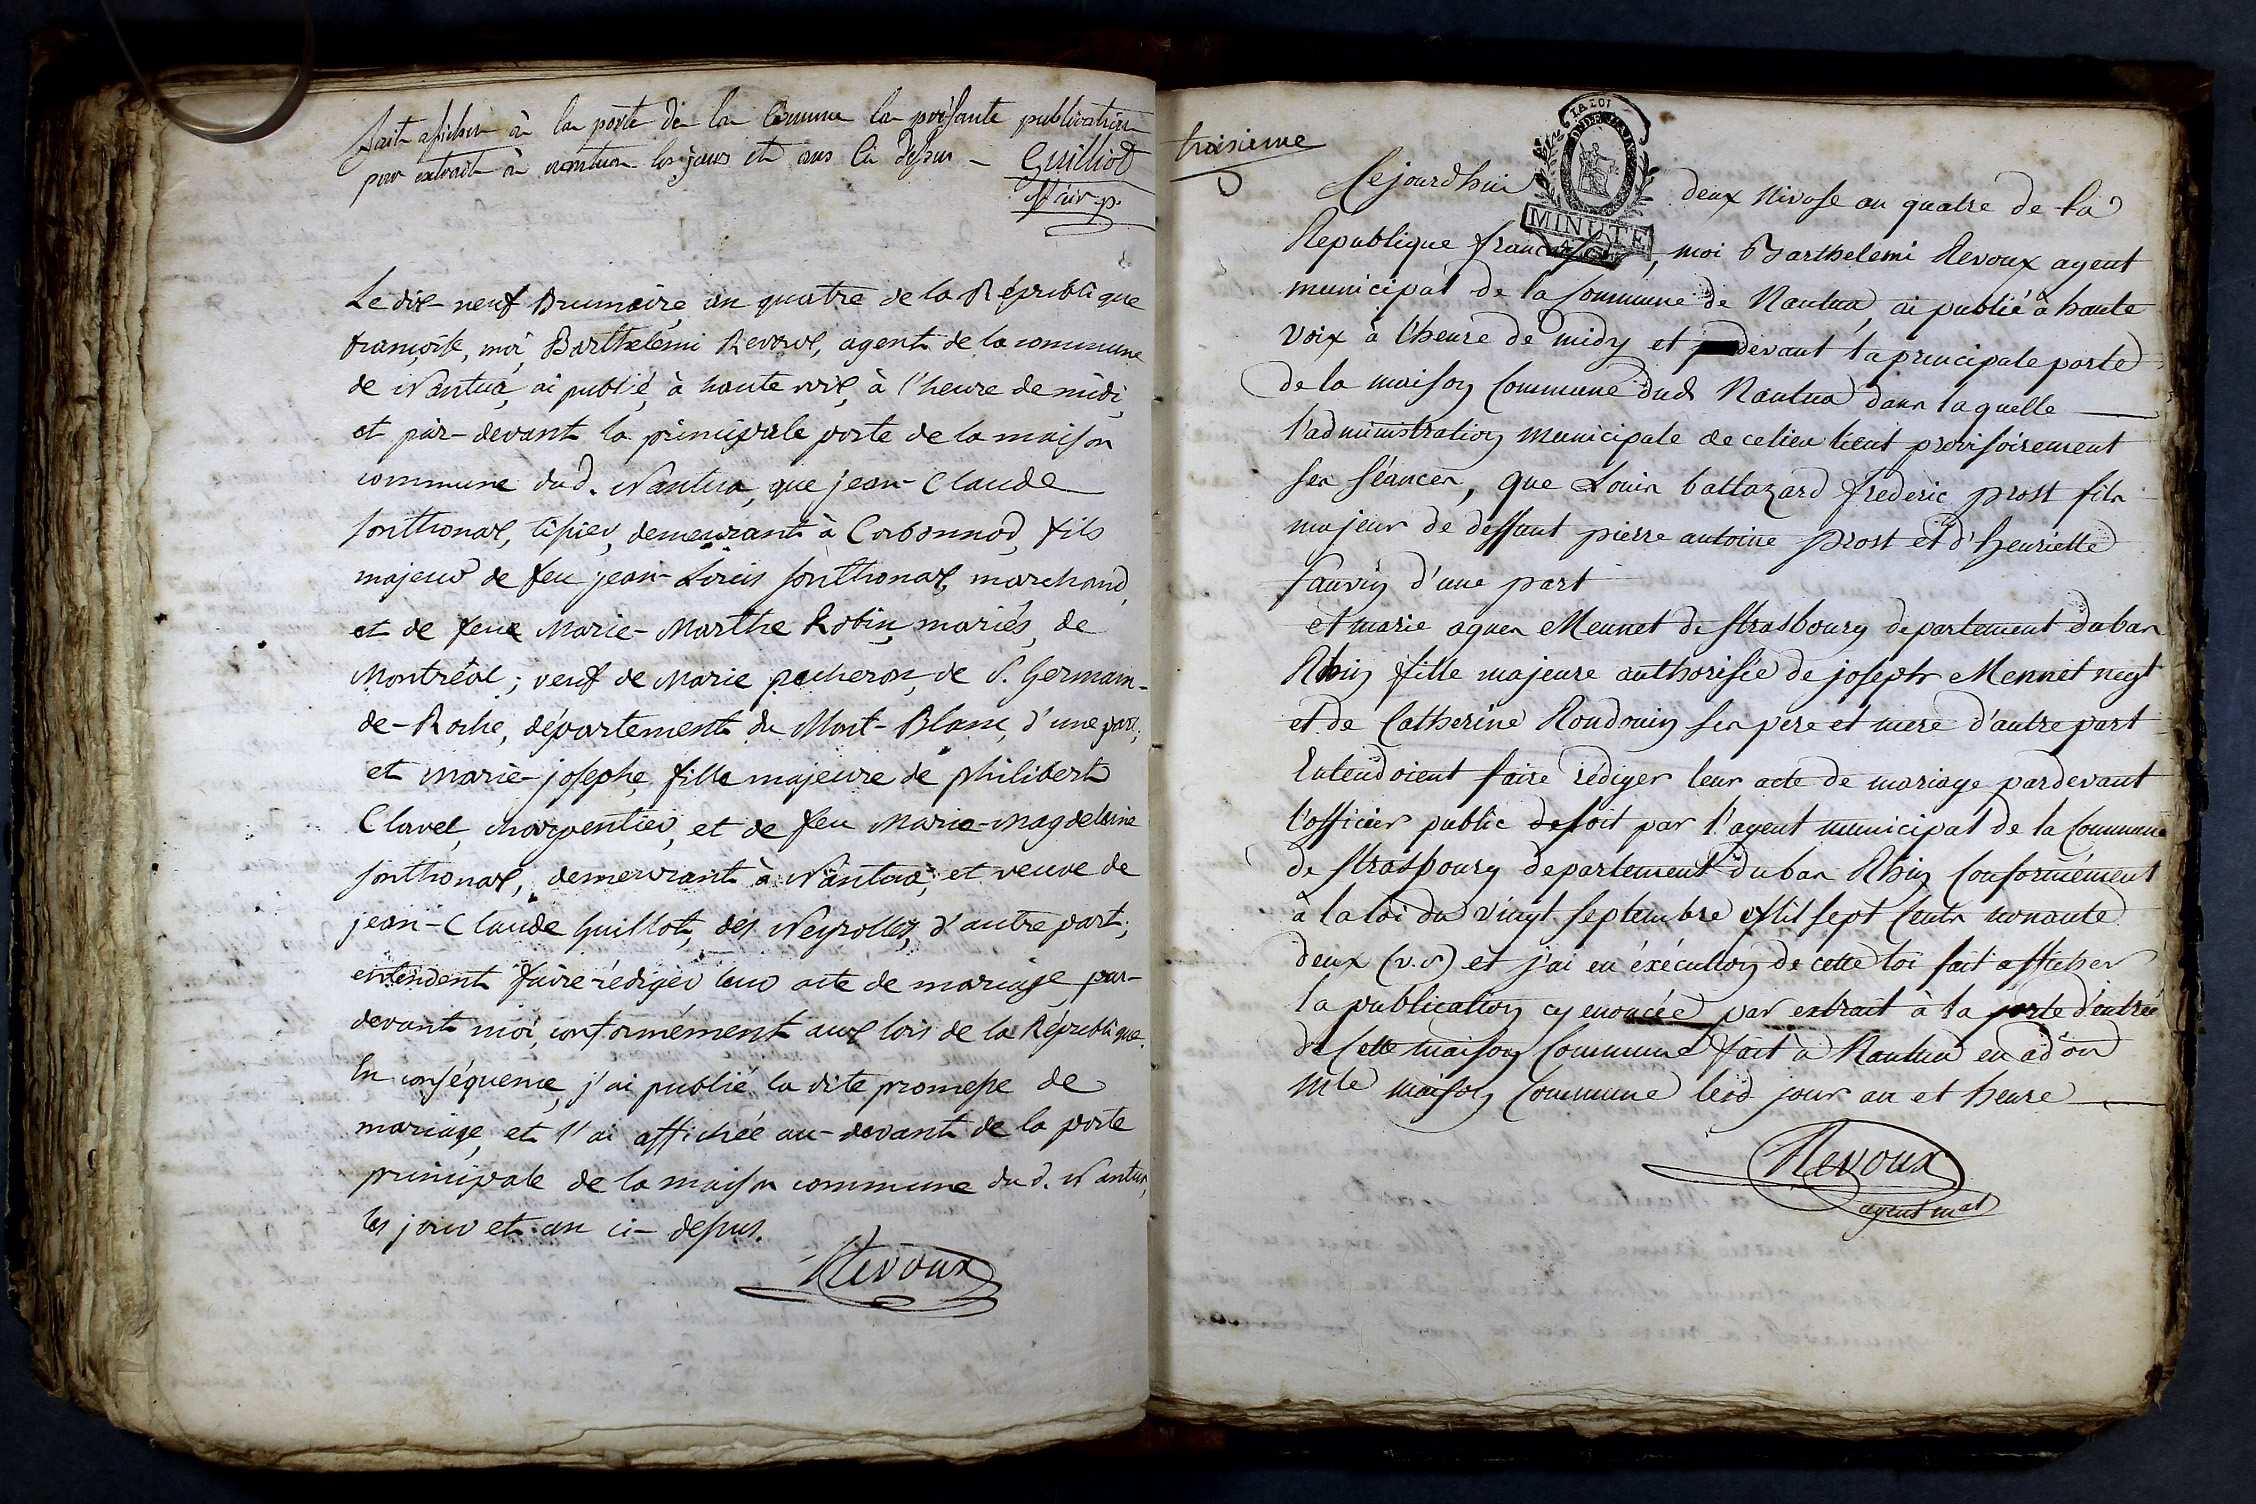 fait afficher à la porte de la Commune la présante publication
par extrait à nantua les jours et ans ci dessus - Guilliot
off. civ. p.
Le dix-neuf Brumaire, an quatre de la République
françoise, moi Barthelémi Revoux, agent de la commune
de Nantua, ai publié, à haute voix, à l'heure de midi,
et par-devant la principale porte de la maison
commune dud. Nantua, que jean-Claude
Sonthonax, tisier, demeurant à Corbonnod, fils
majeur de feu jean-Louis Sonthonax, marchand,
et de feue Marie-Marthe Robin, mariés, de
Montréal; veuf de Marie pacheron, de S. Germain-
de-Roche, département du Mont-Blanc, d'une part;
et marie-josephe, fille majeure de philibert
Clavet, charpentier, et de feu Marie-Magdelaine
Sonthonax, demeurant à Nantua, et veuve de
jean-Claude Guillot, des Neyrolles, d'autre part;
entendent faire rédiger leur acte de mariage par-
devant moi, conformément aux lois de la République.
En conséquence, j'ai publié la dite promesse de
mariage, et l'ai affichée au-devant de la porte
principale de la maison commune dud. Nantua,
les jour et an ci-dessus.
Revoux
troisieme
LA LOI
MINUTE
Cejourdhui deux Nivose an quatre de la
Republique francaise, moi Barthelemi Revoux agent
municipal de la Commune de Nantua, ai publié à haute
voix à l'heure de midy et devant la principale porte
de la maison Commune dud Nantua dans laquelle
l'administration municipale de ce lieu tient provisoirement
ses séances, que Louis baltazard frederic prost fils
majeur de deffunt pierre antoine prost et d'henriette
Sauvin d'une part
et marie agnes Mennet de Strasbourg departement du bas
Rhin fille majeure authorisée de joseph Mennet negt
et de Catherine Roudouin ses pere et mere d'autre part
Entendoient faire rédiger leur acte de mariage pardevant
l'officier public de soit par l'agent municipal de la Commune
de Strasbourg departement du bas Rhin Conformément
à la loi du vingt septembre Mil sept Cents nonante
deux (v.s) et j'ai en éxécution de cette loi fait afficher
la publication cy enoncée par extrait à la porte d'entrée
de Cette maison Commune fait à Nantua en ad.on
mle maison Commune lesd jour an et heure
Revoux
agent mal